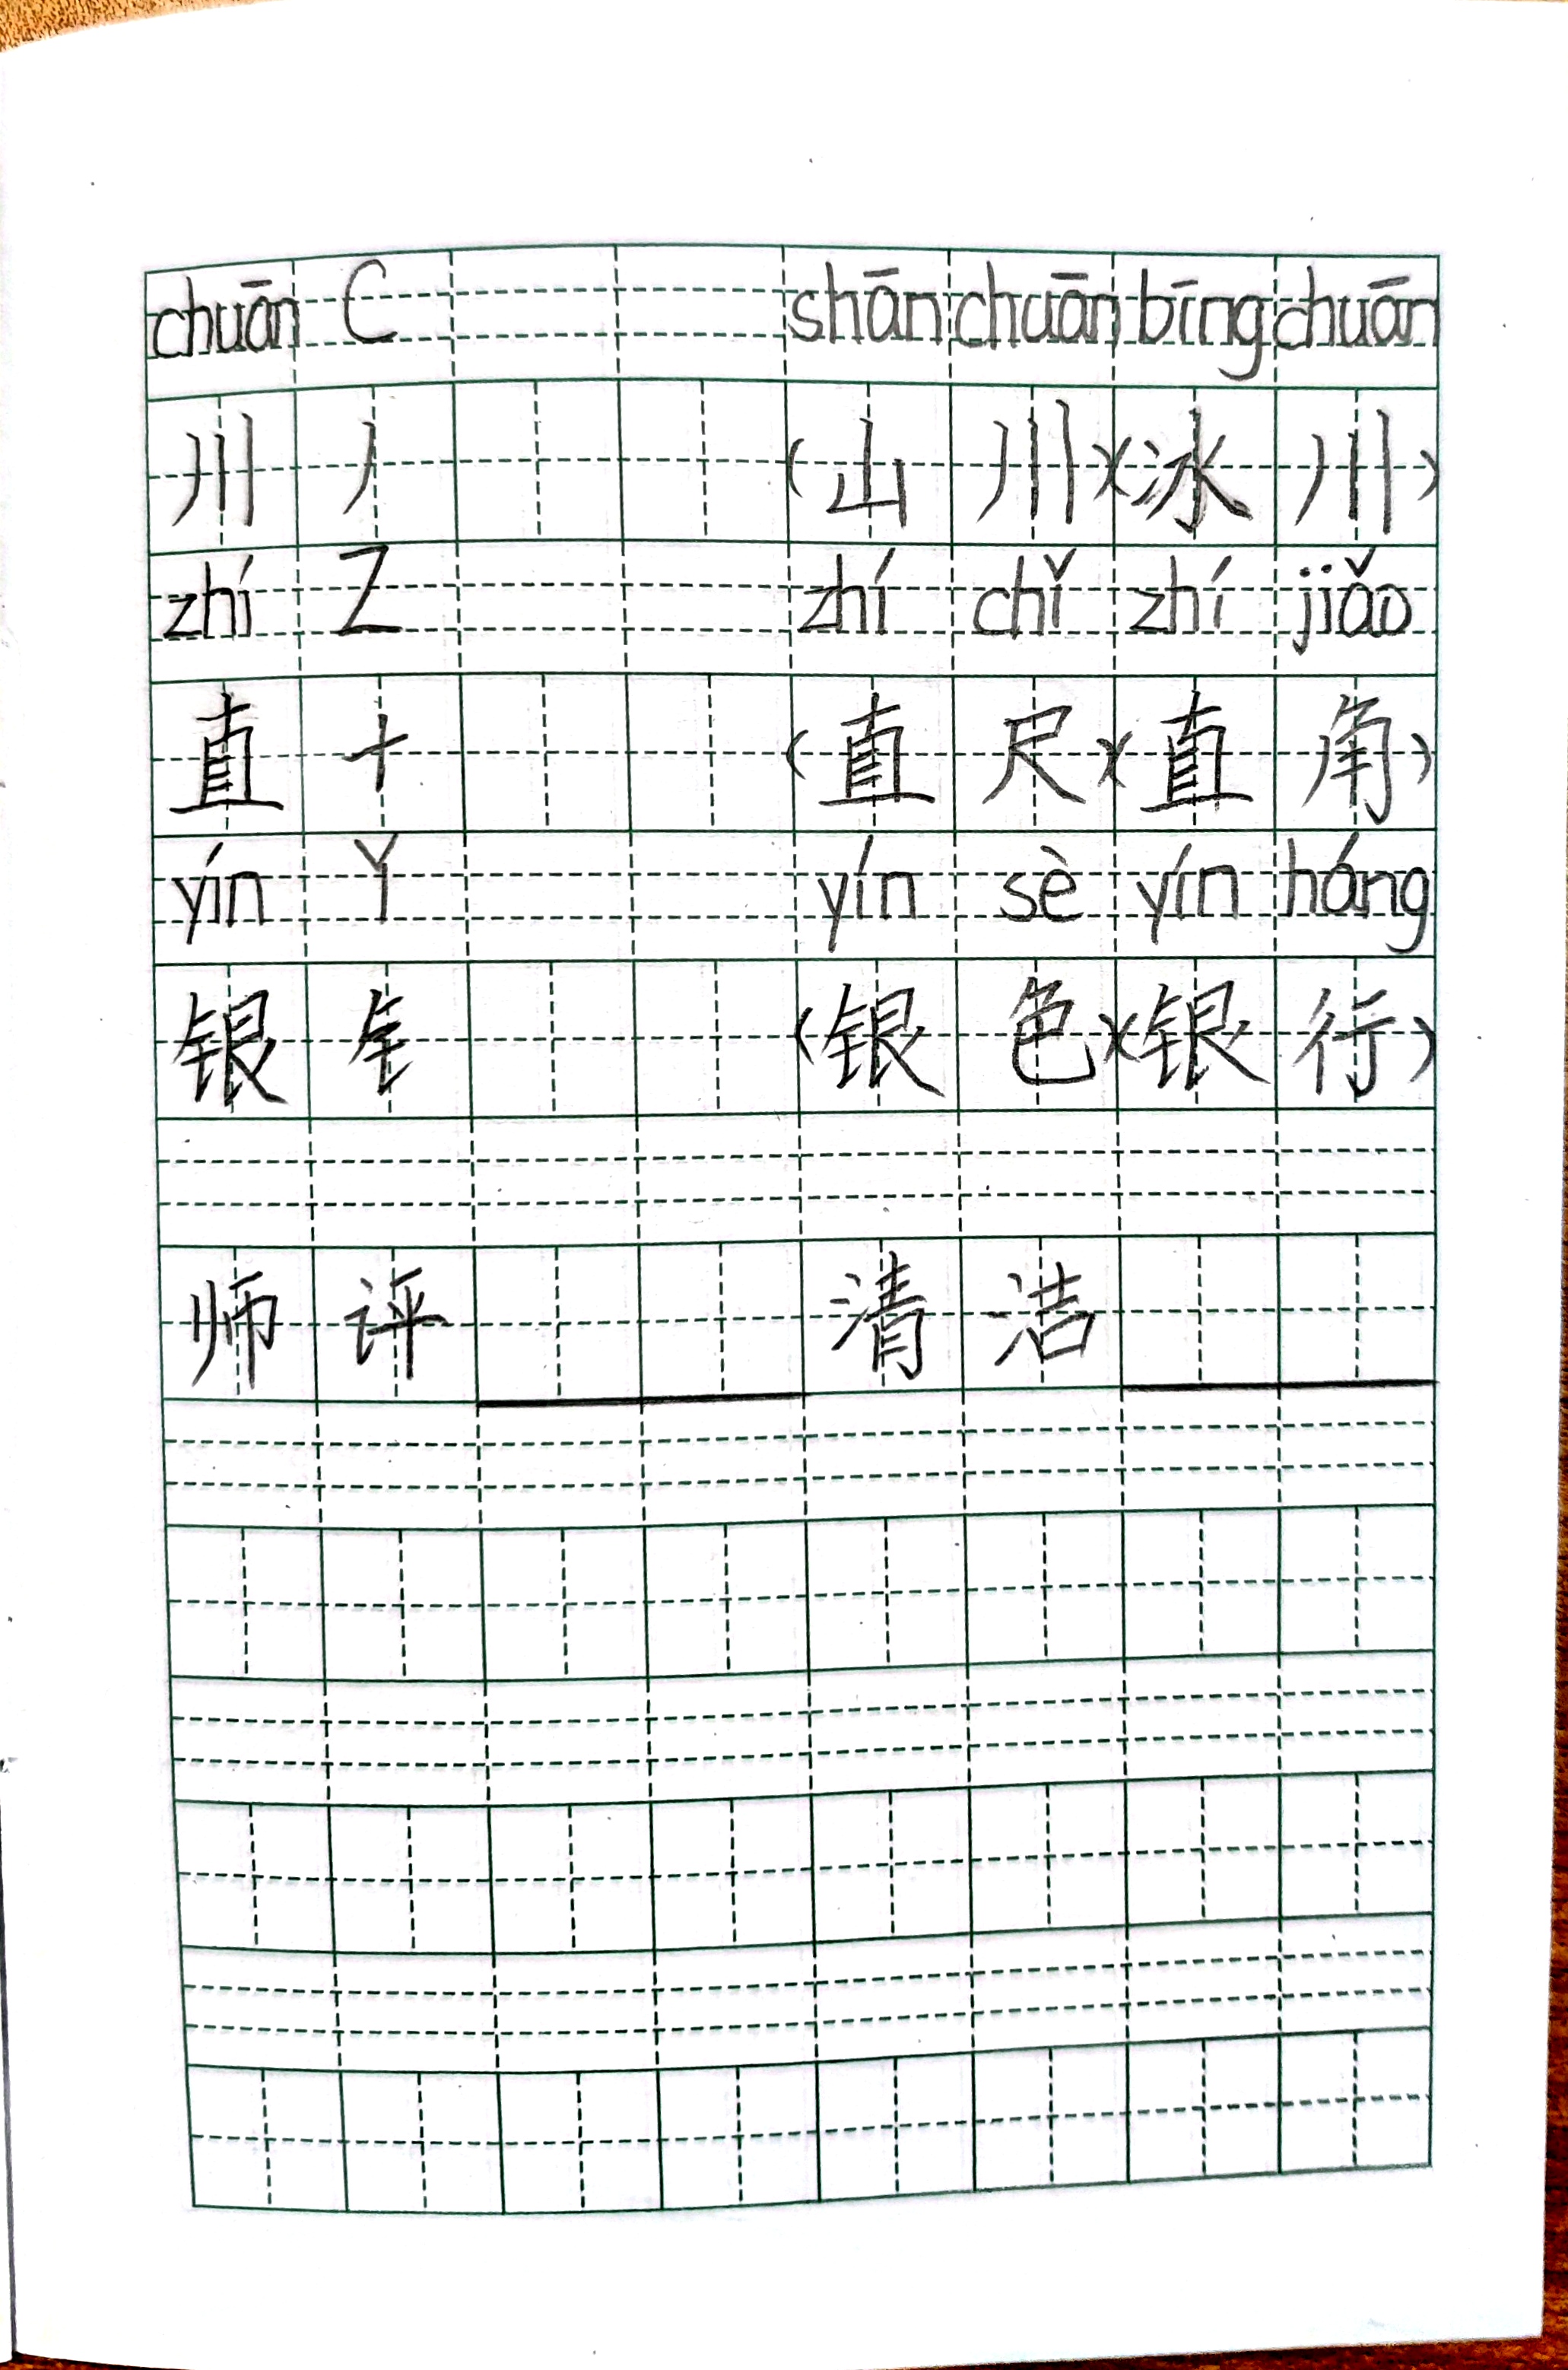 chuān C shān chuān bīng chuān
川 丿 (山川)(冰川)
zhí Z zhí chǐ zhí jiǎo
直 十 (直尺)(直角)
yín Y yín sè yín háng
银 钅 (银色)(银行)
师评 清洁